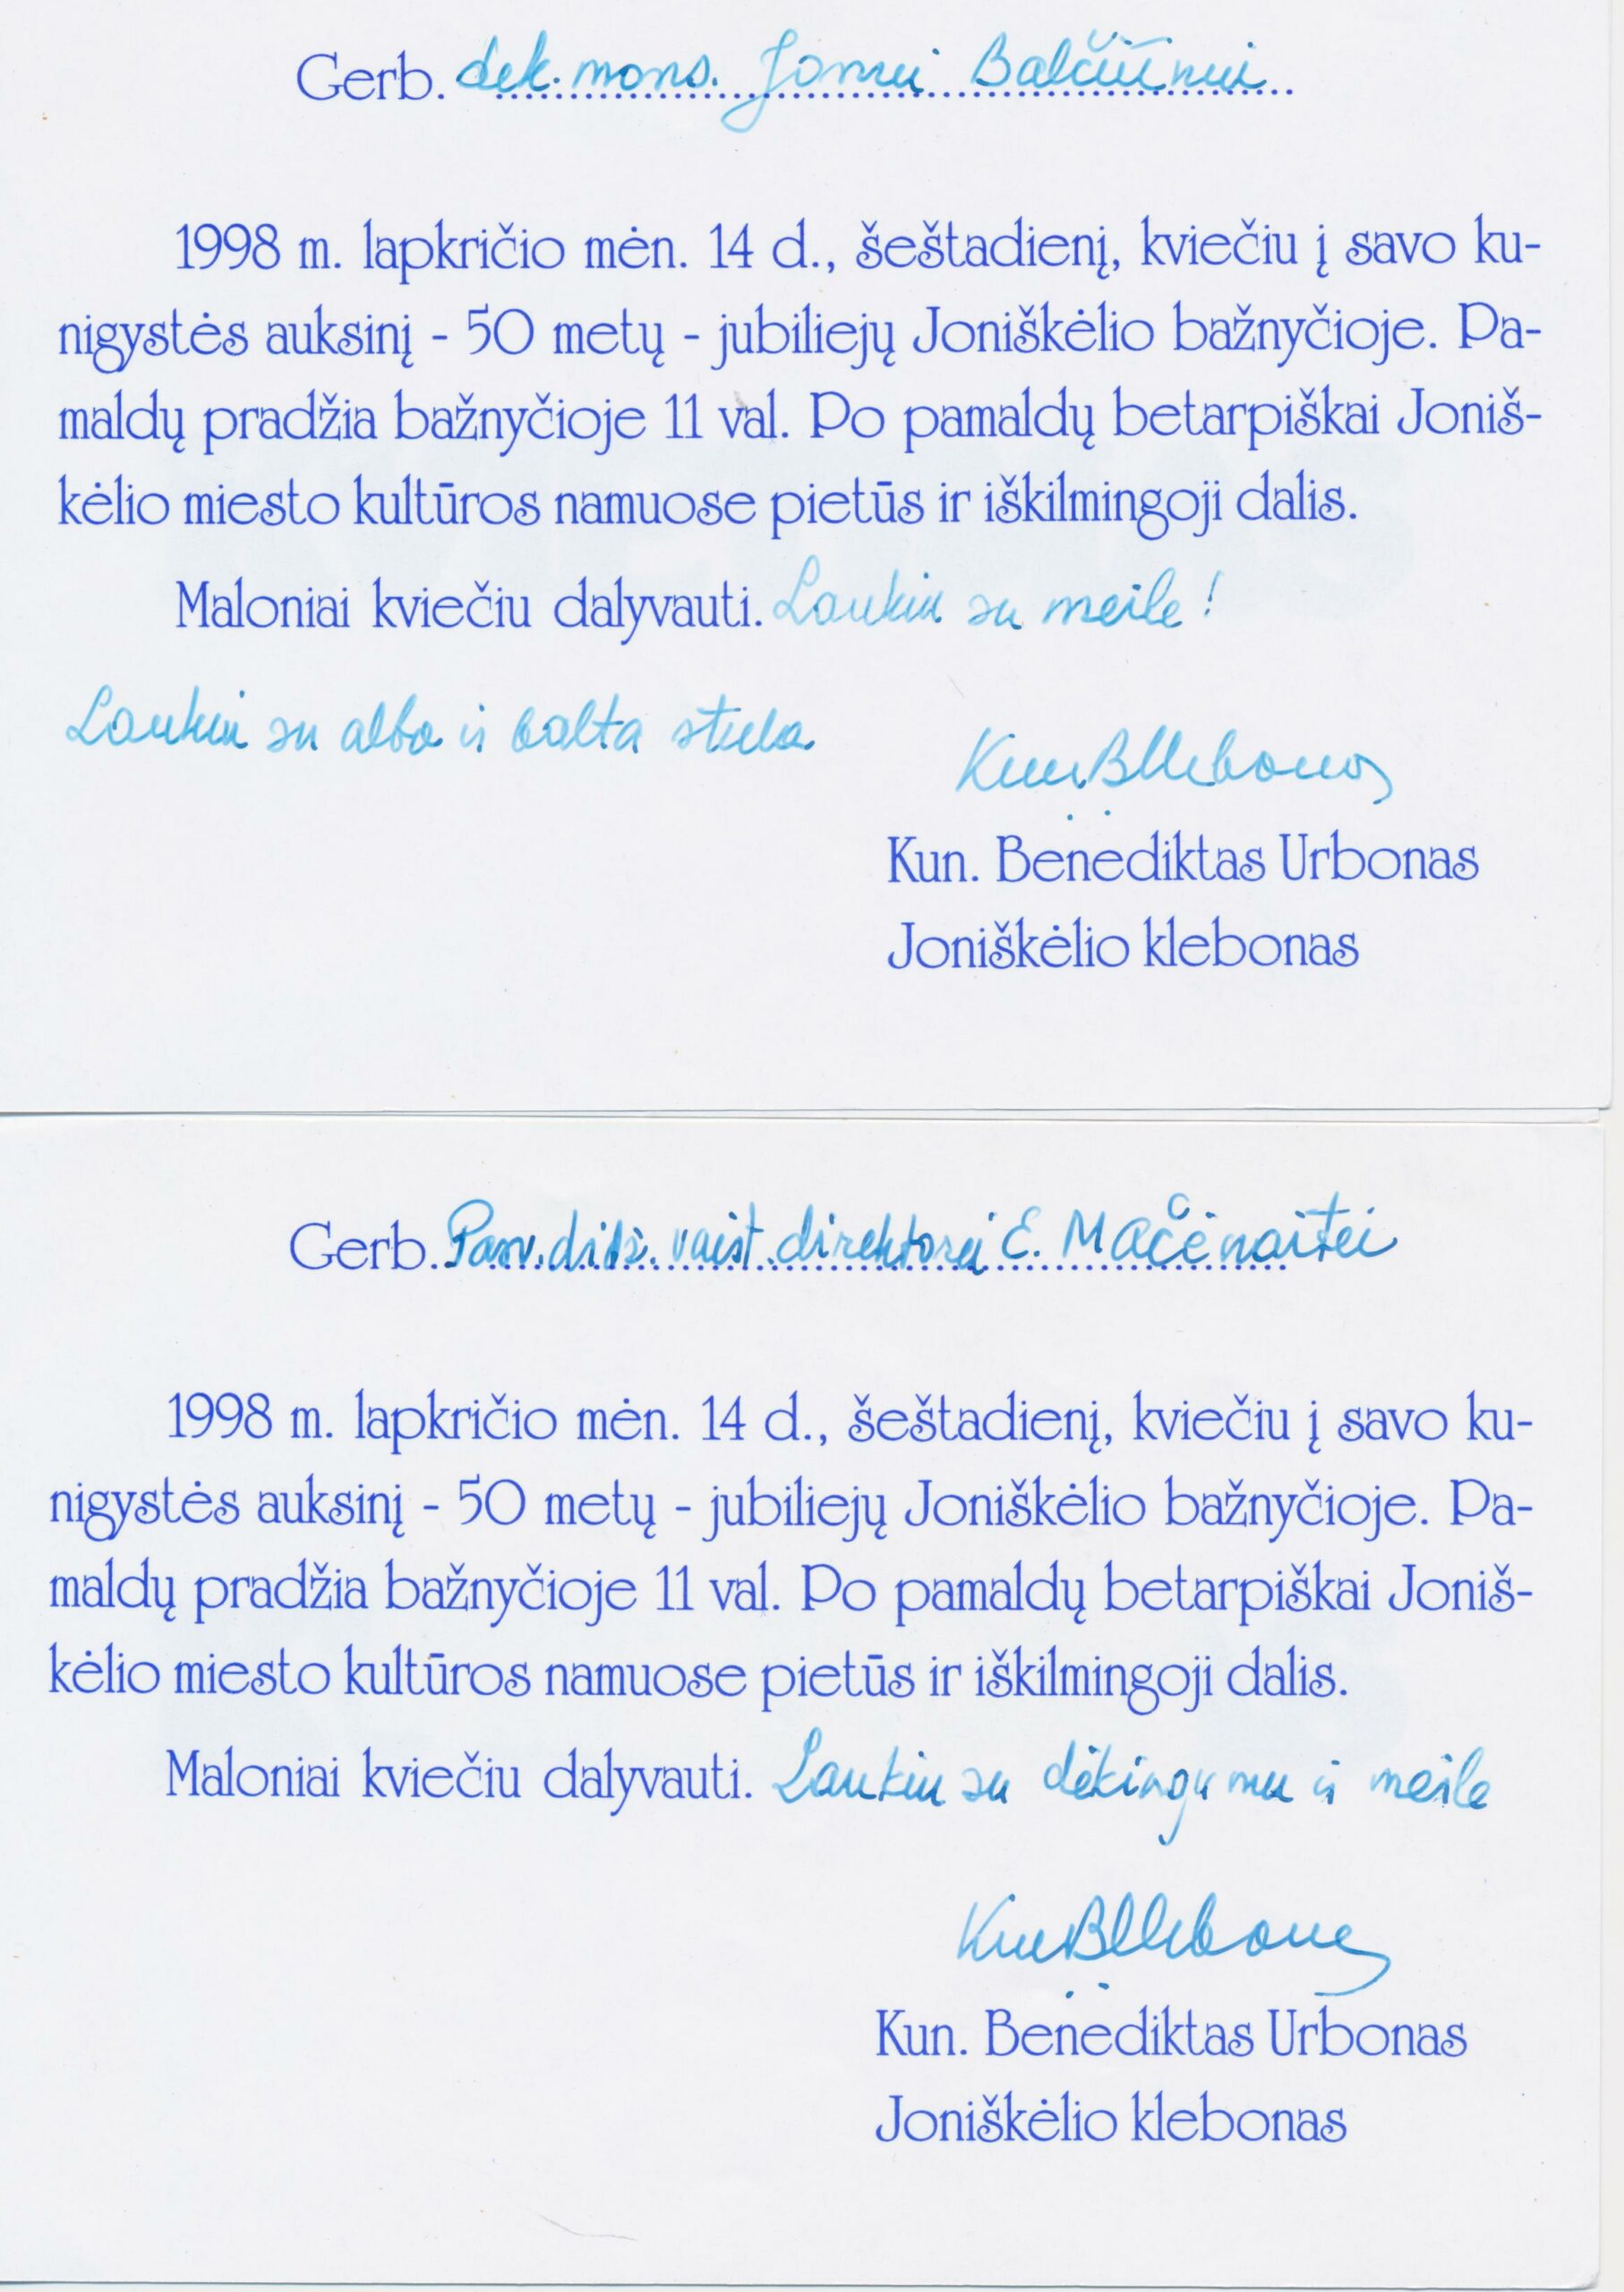 Gerb. dek. mons. Jonui Balčiūnui
1998 m. lapkričio mėn. 14 d., šeštadienį, kviečiu į savo ku-
nigystės auksinį - 50 metų - jubiliejų Joniškėlio bažnyčioje. Pa-
maldų pradžia bažnyčioje 11 val. Po pamaldų betarpiškai Joniš-
kėlio miesto kultūros namuose pietūs ir iškilmingoji dalis.
Maloniai kviečiu dalyvauti. Laukiu su meile!
Laukiu su alba ir balta stula
Kun B Urbonas
Kun. Benediktas Urbonas
Joniškėlio klebonas
Gerb. Pasv. vaist. direktorei E. Mačėnaitei
1998 m. lapkričio mėn. 14 d., šeštadienį, kviečiu į savo ku-
nigystės auksinį - 50 metų - jubiliejų Joniškėlio bažnyčioje. Pa-
maldų pradžia bažnyčioje 11 val. Po pamaldų betarpiškai Joniš-
kėlio miesto kultūros namuose pietūs ir iškilmingoji dalis.
Maloniai kviečiu dalyvauti. Laukiu su dėkingumu ir meile
Kun B Urbonas
Kun. Benediktas Urbonas
Joniškėlio klebonas